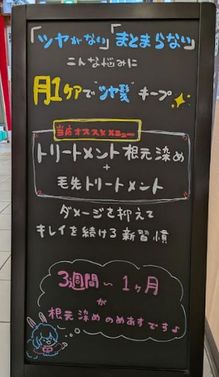 「ツヤがない」「まとまらない」
こんな悩みに
月1ケアで"ツヤ髪"キープ
当店オススメメニュー
トリートメント根元染め
+
毛先トリートメント
ダメージを抑えて
キレイを続ける新習慣
3週間〜1ヶ月
が
根元染めのめあすですよ